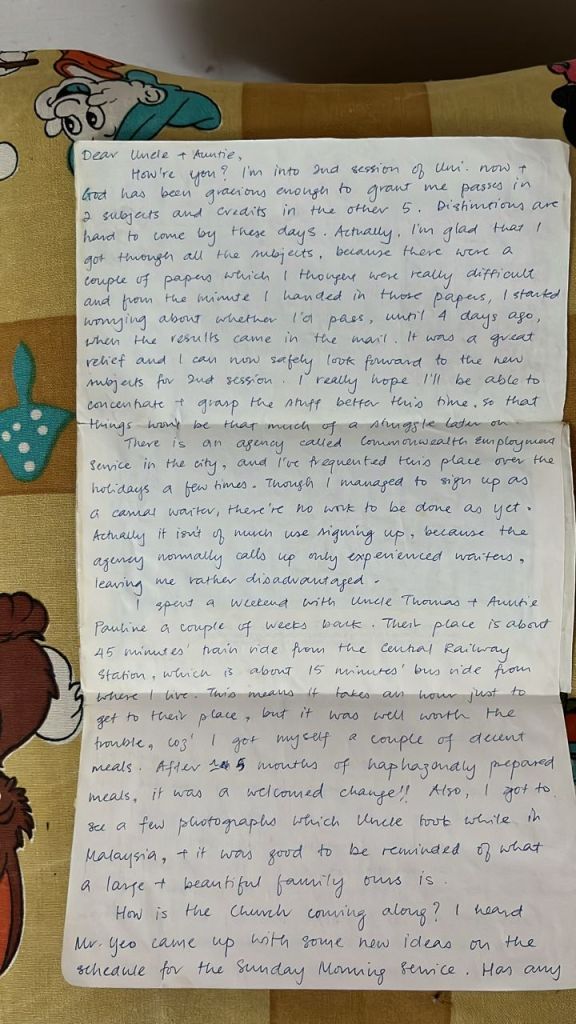 Dear Uncle + Auntie,
How're you? I'm into 2nd session of Uni. now +
God has been gracious enough to grant me passes in
2 subjects and credits in the other 5. Distinctions are
hard to come by these days. Actually, I'm glad that I
got through all the subjects, because there were a
couple of papers which I thought were really difficult
and from the minute I handed in those papers, I started
worrying about whether I'd pass, until 4 days ago,
when the results came in the mail. It was a great
relief and I can now safely look forward to the new
subjects for 2nd session. I really hope I'll be able to
concentrate + grasp the stuff better this time, so that
things won't be that much of a struggle later on.
There is an agency called Commonwealth Employment
Service in the city, and I've frequented this place over the
holidays a few times. Though I managed to sign up as
a casual waiter, there're no work to be done as yet.
Actually it isn't of much use signing up, because the
agency normally calls up only experienced waiters,
leaving me rather disadvantaged.
I spent a weekend with Uncle Thomas + Auntie
Pauline a couple of weeks back. Their place is about
45 minutes' train ride from the Central Railway
Station, which is about 15 minutes' bus ride from
where I live. This means it takes an hour just to
get to their place, but it was well worth the
trouble, coz' I got myself a couple of decent
meals. After 5 months of haphazardly prepared
meals, it was a welcomed change!! Also, I got to
see a few photographs which Uncle took while in
Malaysia, + it was good to be reminded of what
a large + beautiful family ours is.
How is the Church coming along? I heard
Mr. Yeo came up with some new ideas on the
schedule for the Sunday Morning Service. Has any